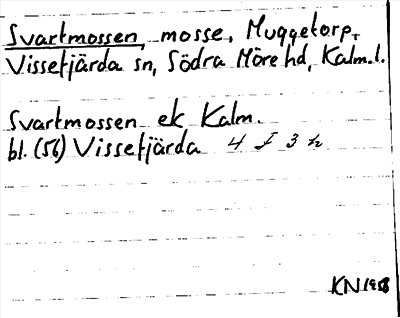 Svartmossen, mosse, Muggetorp,
Vissefjärda sn, Södra Möre hd, Kalm. l.
Svartmossen ek Kalm.
bl. (56) Vissefjärda 4 F 3 h
KN